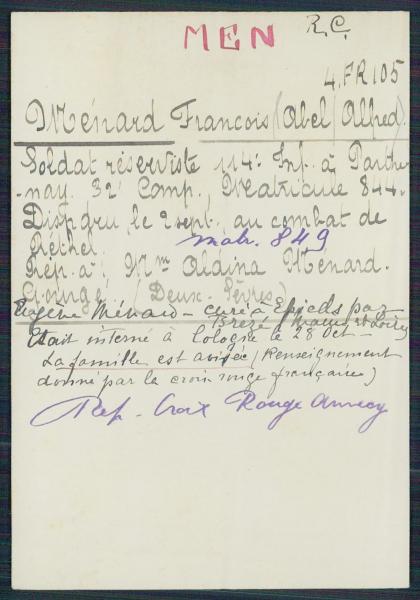 MEN R.C.
4.FR105
Ménard Francois (Abel Alfred).
Soldat réserviste 114e Inf. à Parthe-
-nay. 32e Comp. Matricule 844.
Disparu le 2 sept. au combat de
Rethel. matr. 849
Rép. à: Mme Aldina Menard.
(Deux-Sèvres)
Eugène Ménard - curé à Epieds par
Brézé (Maine et Loire)
Etait interné à Cologne le 28 Oct -
La famille est avisée (Renseignement
donné par la croix rouge française)
Rep - Croix Rouge Annecy